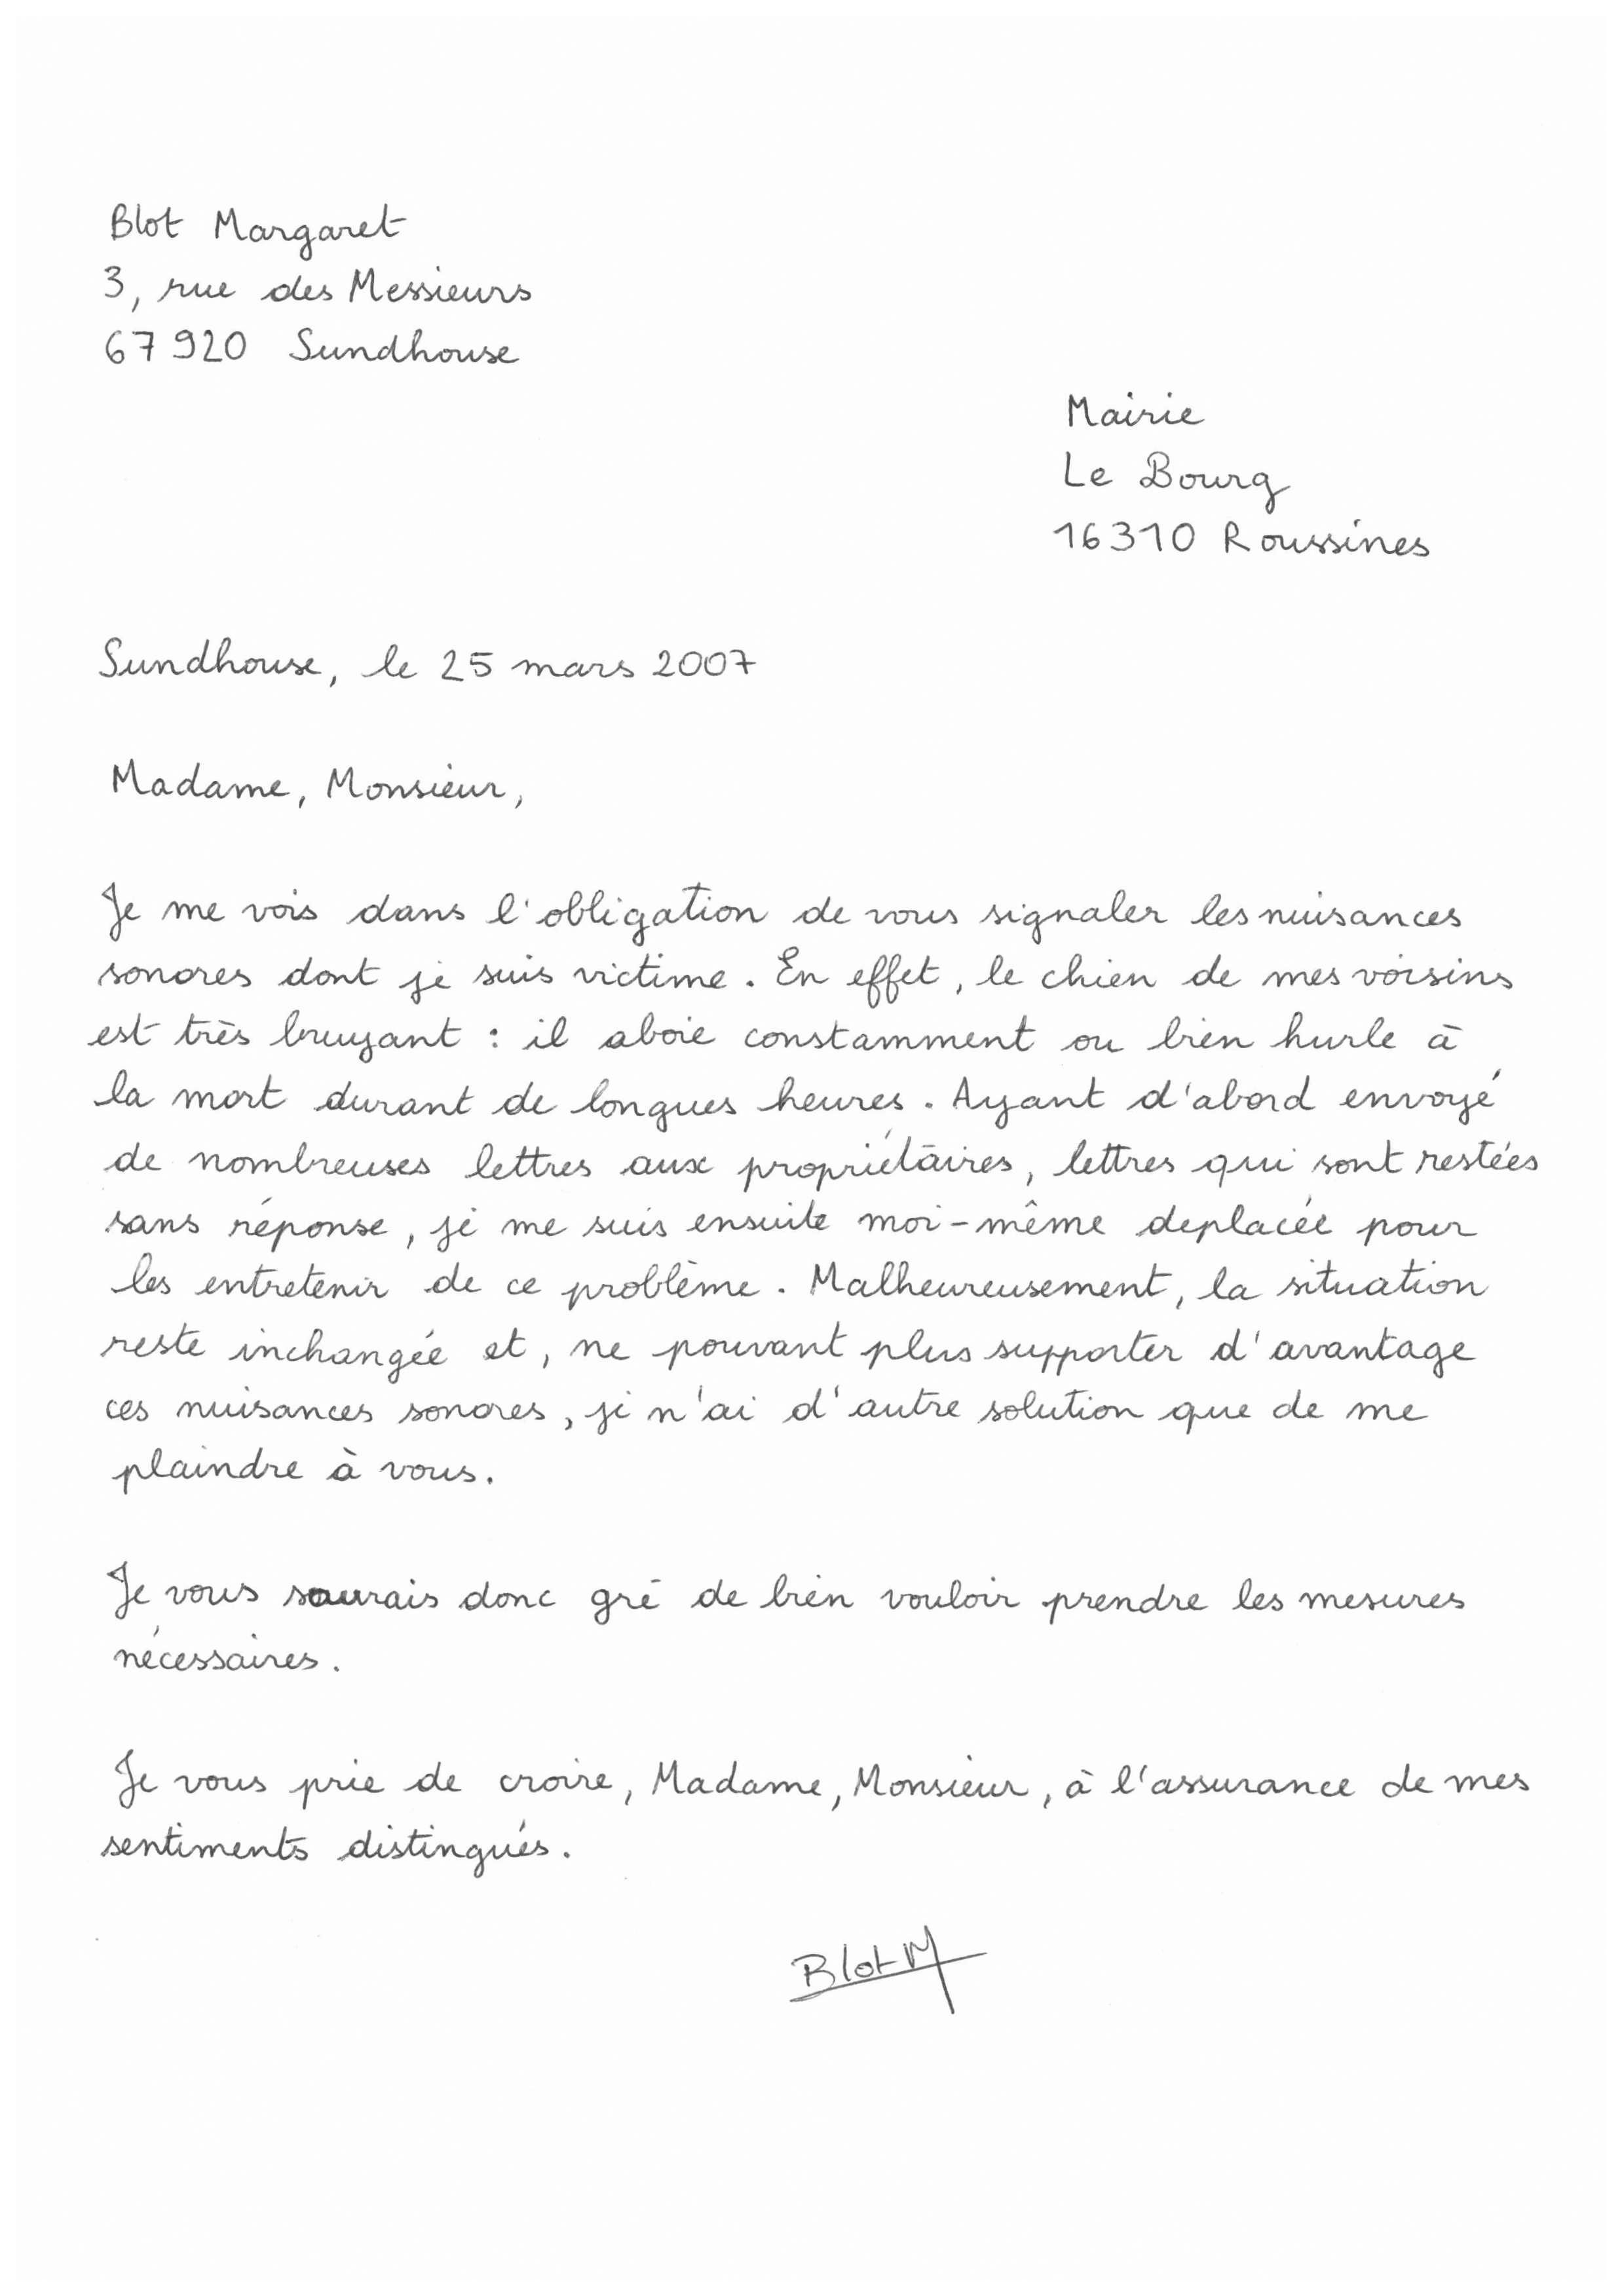 Blot Margaret
3, rue des Messieurs
67920 Sundhouse
Mairie
Le Bourg
16310 Roussines
Sundhouse, le 25 mars 2007
Madame, Monsieur,
Je me vois dans l'obligation de vous signaler les nuisances
sonores dont je suis victime. En effet, le chien de mes voisins
est très bruyant : il aboie constamment ou bien hurle à
la mort durant de longues heures. Ayant d'abord envoyé
de nombreuses lettres aux propriétaires, lettres qui sont restées
sans réponse, je me suis ensuite moi-même deplacée pour
les entretenir de ce problème. Malheureusement, la situation
reste inchangée et, ne pouvant plus supporter d'avantage
ces nuisances sonores, je n'ai d'autre solution que de me
plaindre à vous.
Je vous saurais donc gré de bien vouloir prendre les mesures
nécessaires.
Je vous prie de croire, Madame, Monsieur, à l'assurance de mes
sentiments distingués.
Blot M